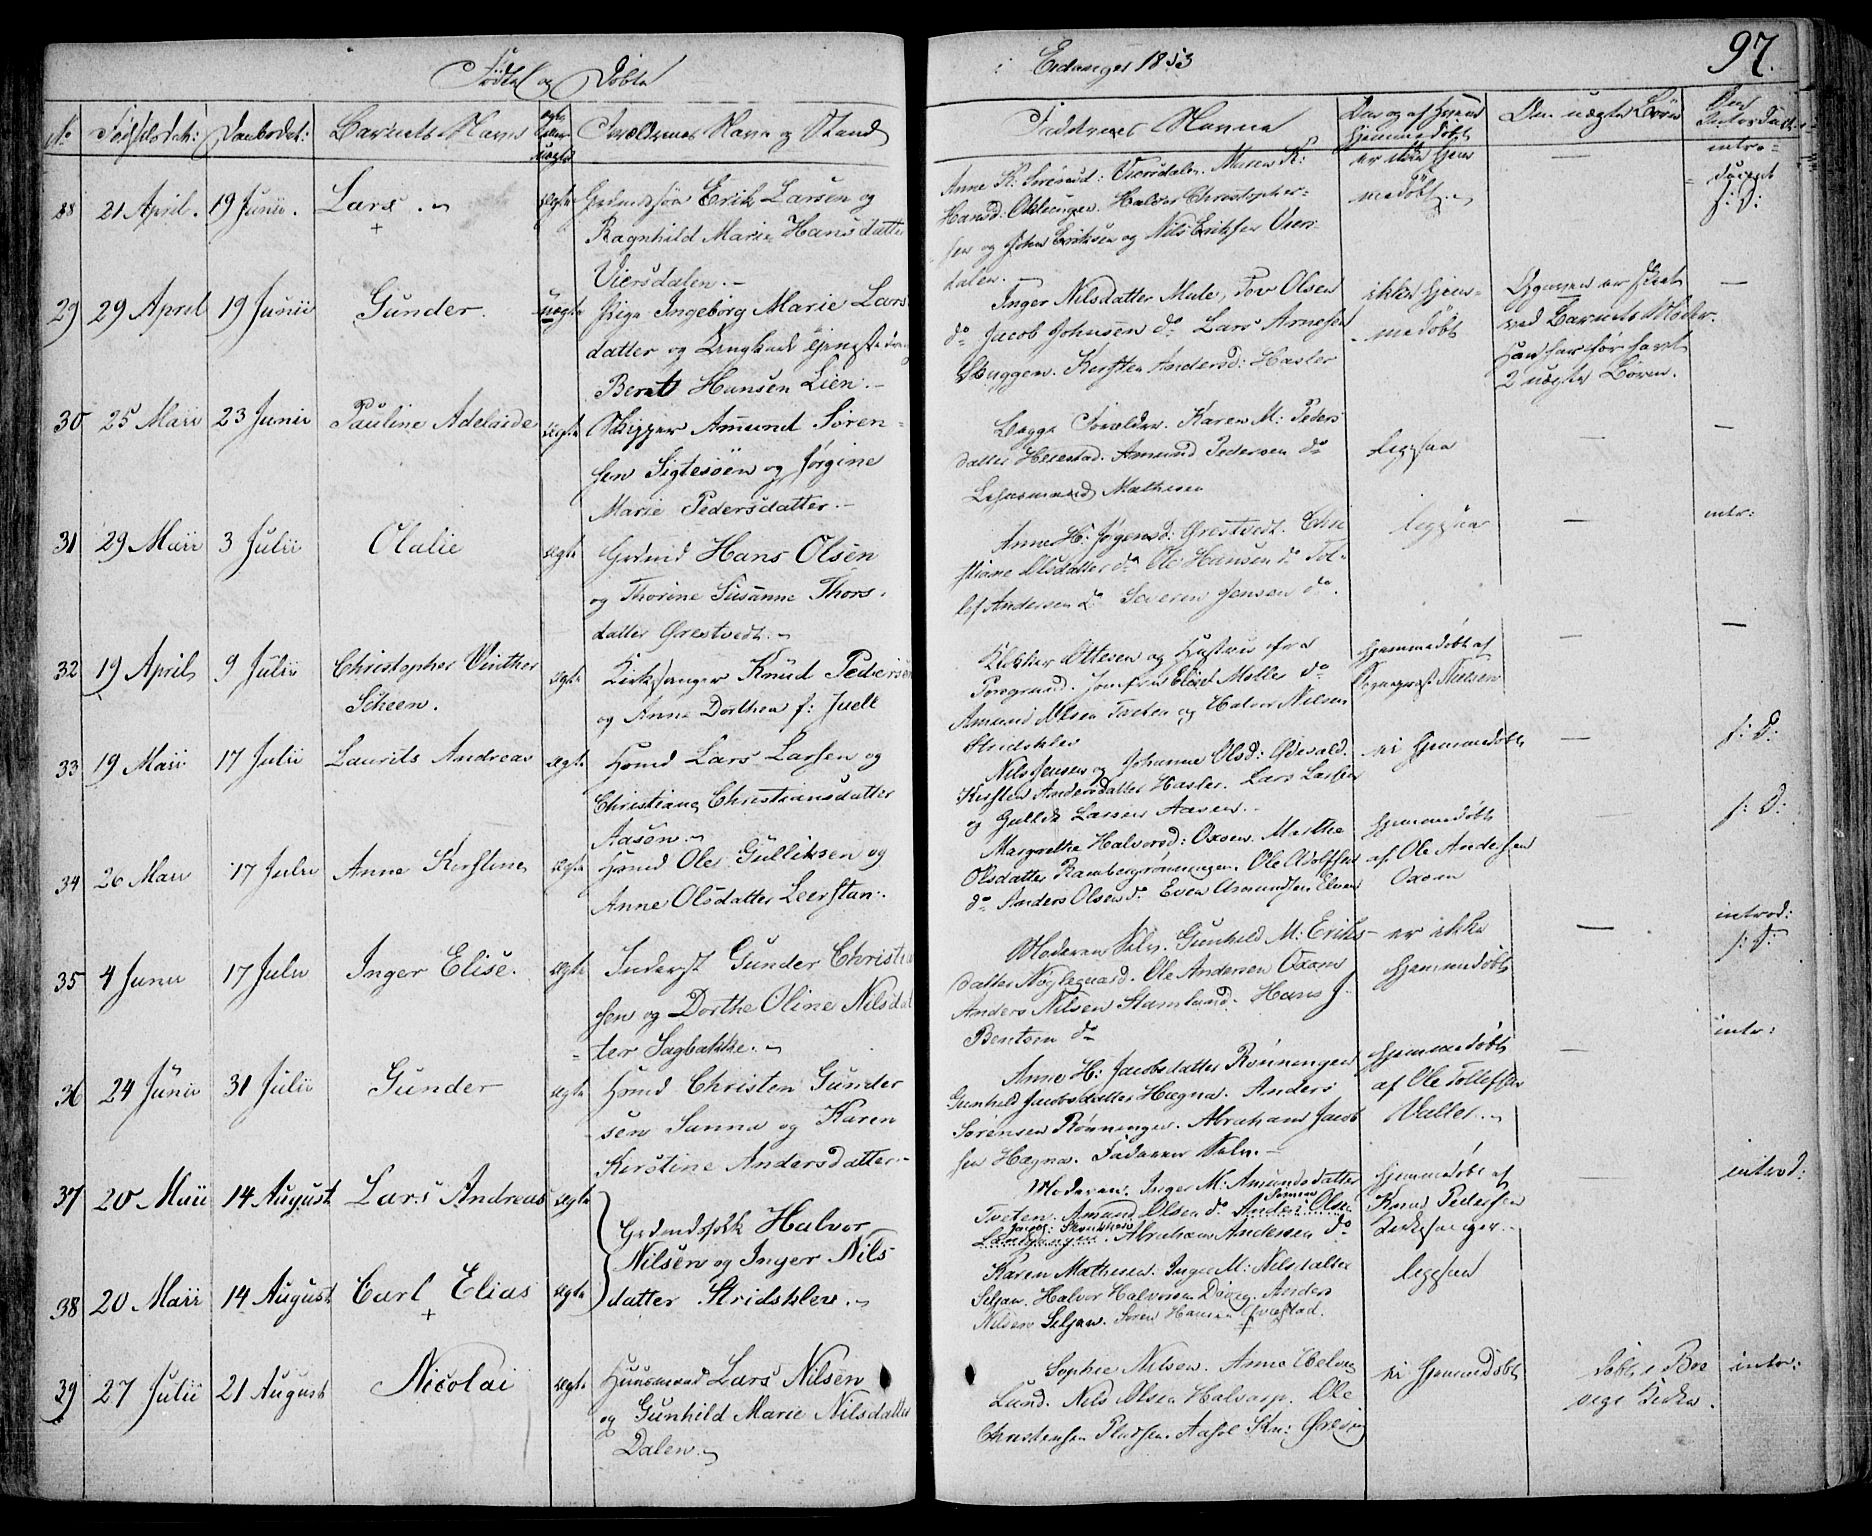 Fødte og Døbte
i Eidanger 1853
97.
No
Fødselsdat:
Daabsdat:
Barnets Navn
ægte eller uægte
Forældrenes Navn og Stand
Faddrenes Navne
Om og af hvem hjemmedøbt
Om uægte Børn
28
21 April.
19 Junii.
Lars.
+
ægte
Erik Larsen og
Ragnhild Marie Hansdatter
Viersdalen.
Anne K: Sørensd: Viersdalen. Maren K:
Hansd: Halvor Christopher-
sen og John Eriksen og Nils Eriksen Viers
dalen.
er ikke hjem
medøbt.
—
intro-
duceret
f: D:
29
29 April
19 Junii
Gunder.
uægte
Pige Ingeborg Marie Lars
datter og Ungkarl Tjenestedreng
Bernt Hansen Lien.
Inger Nilsdatter Mule, Tov Olsen
do Jacob Johnsen do Lars Arnesen
Skuggen. Kersten Andersd: Hasler
ikke hjem-
medøbt
er skeet
ved Barnets Moder.
han har før havt
2 uægte Børn.
—
30
25 Marii
23 Junii
Pauline Adelaide
ægte
Skipper Amund Søren-
sen Sigtesøen og Jørgine
Marie Pedersdatter.
Begge Forældre. Karen M: Peders
datter Heiestad. Amund Pedersen do
Mathesen
ligesaa
—
—
31
29 Maii
3 Julii
Olalie
ægte
Gaardmd Hans Olsen
og Thorine Susanne Thors-
datter Ørestvedt.
Anne H: Jørgensd: Ørestvedt. Chri
stiane Olsdatter do Ole Hansen do Tol-
lef Andersen do Severin Jensen do.
ligesaa
—
intr:
32
19 April
9 Julii
Christopher Vinther
Scheen.
ægte
Kirkesanger Knud Pedersen
og Anne Dorthea f: Juell
Klokker Ottesen og Hustru fra
Porsgrund. Jomfru Elise Møller do
Amund Olsen Tveten og Halvor Nilsen
Stridsklev
hjemmedøbt af
Sogneprest Nielsen
—
—
33
19 Maii
17 Julii
Laurits Andreas
ægte
Huusmd Lars Larsen og
Christiane Christiansdatter
Aasen.
Nils Jensen og Johanne Olsd: Ødevald.
Kersten Andersdatter Hasler. Lars Larsen
og Gullik Larsen Aasen.
ei hjemmedøbt
—
f: D:
34
26 Maii
17 Julii
Anne Kirstine
ægte
Huusmd Ole Gulliksen og
Anne Olsdatter Leerstan.
Margrethe Halvorsd: Oxsen. Marthe
Olsdatter Rambergrønningen. Ole Adolfsen
do Anders Olsen do Even Amundsen
hjemmedøbt
af Ole Andersen
Oxoen
f: D:
35
4 Junii
17 Julii
Inger Elise.
ægte
Inderst Gunder Christian
sen og Dorthe Oline Nilsdat
ter Sagbakke.
Moderen selv. Gunhild M: Eriks-
datter Nøglegaard. Ole Andersen Oxoen
Anders Nilsen Stamland. Hans J.
Bentsen do
er ikke
hjemmedøbt
—
introd:
f: D:
36
24 Junii
31 Julii
Gunder
ægte
Huusmd Christen Gunder
sen Sanna og Karen
Kirstine Andersdatter.
Anne H: Jacobsdatter Rønningen
Gunhild Jacobsdatter Hegna. Anders
Sørensen Rønningen. Abraham Jacob
sen Hegna. Faderen selv.
hjemmedøbt
af Ole Tollefsen
Valler.
—
intr:
37
20 Maii
14 August
Lars Andreas
ægte
Gaardmandsfolk Halvor
Nilsen og Inger Nils
datter Stridsklev.
Moderen. Inger M: Amundsdatter
Tveten. Amund Olsen do Anders Olsen
Langangen. Abraham Andersen do
hjemmedøbt af
Knud Pedersen
Kirkesanger.
introd:
38
20 Maii
14 August
Carl Elias
+
ægte
Karen Mathesen. Inger M: Nilsdatter
Seljan. Halvor Halvorsen Anders
Nilsen Seljan. Søren Hansen
ligesaa
39
27 Julii
21 August
Nicolai
ægte
Huusmand Lars Nilsen
og Gunhild Marie Nilsdatter
Dalen.
Sophie Nilsen. Anne
Lund. Nils Olsen Ole
Christensen
ei hjemmedøbt
Døbt i Bre
vigs Kirke.
intr: